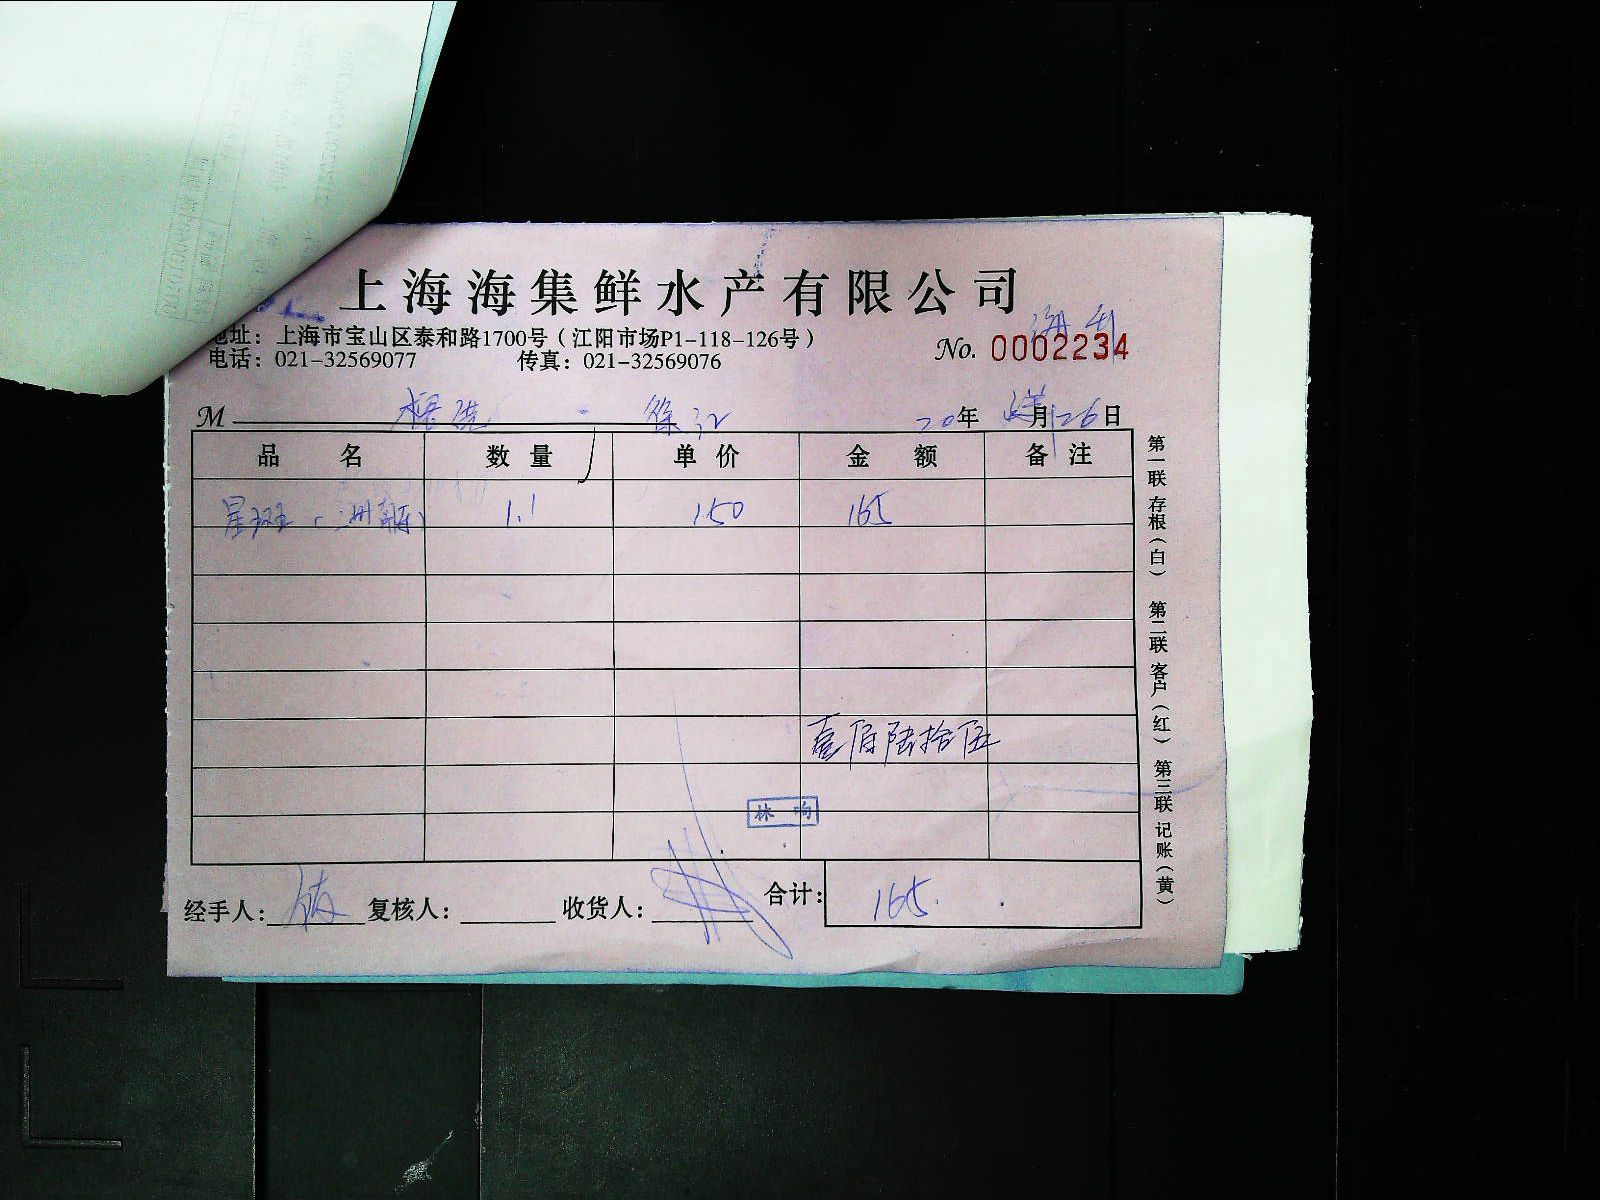 上海海集鲜水产有限公司
地址：上海市宝山区泰和路1700号（江阳市场P1-118-126号）
电话：021-32569077 传真：021-32569076
No. 0002234
M 徐汇 20年 月26日
品名 数量 单价 金额 备注
星斑 1.1 150 165
壹佰陆拾伍
林
经手人： 复核人： 收货人： 合计： 165
第一联 存根（白） 第二联 客户（红） 第三联 记账（黄）